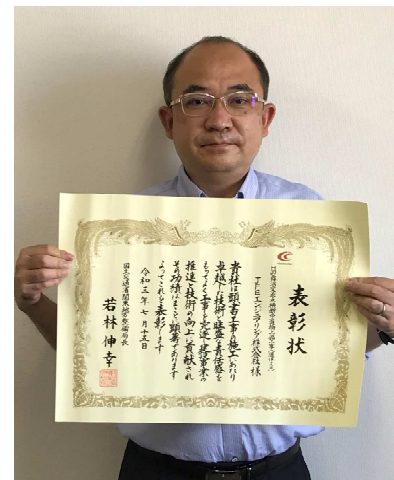 表彰状
JFEエンジニアリング株式会社 様
貴社は頭書工事の施工にあたり
卓越した技術と旺盛な責任感を
もってよく工事を完遂し建設事業の
推進と技術の向上に貢献され
その功績はまことに顕著であります
よってこれを表彰します
令和三年七月十五日
国土交通省関東地方整備局長
若林伸幸